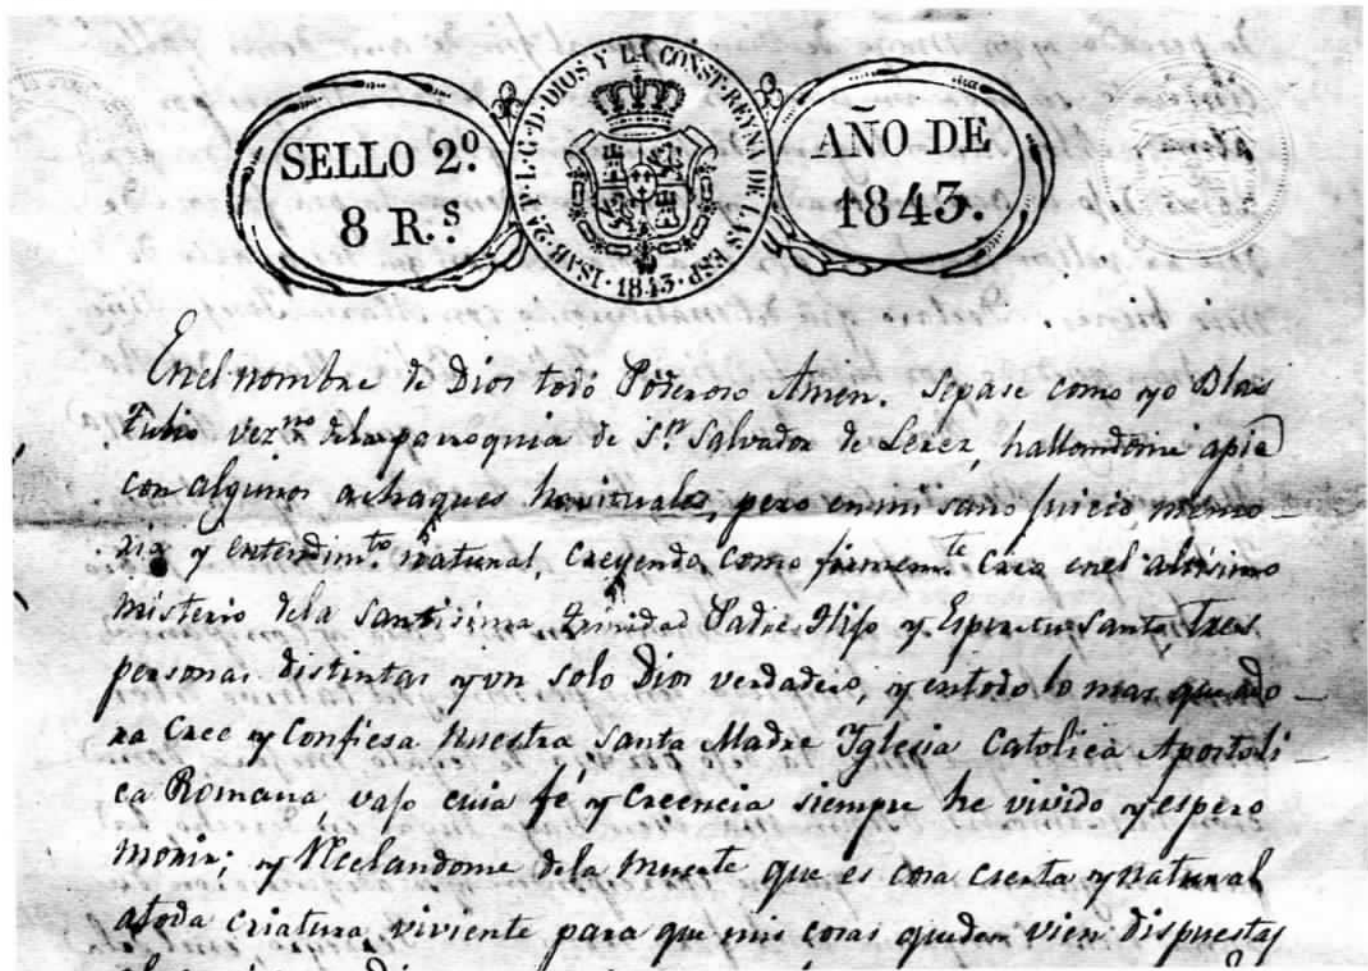 SELLO 2º.
8 R.s
ISAB. 2ª P. L. G. D. DIOS Y LA CONST. REYNA DE LAS ESP. 1843.
AÑO DE
1843.
En el nombre de Dios todo Poderoso Amen. Sepase como yo Blas
Tubio vez.no dela parroquia de S.n Salvador de Lerez, hallandome apie
con algunos achaques havituales, pero en mi sano juicio, memo-
ria y entendim.to natural, creyendo como firmem.te creo enel altisimo
misterio dela santisima trinidad Padre Hijo y Espiritu santo, tres
personas distintas y un solo Dios verdadero, y entodo lo mas que ado-
ra cree y confiesa nuestra santa Madre Iglesia Catolica Apostoli-
ca Romana, vajo cuia fé y creencia siempre he vivido y espero
morir; y Recelandome dela muerte que es cosa cierta y natural
atoda criatura viviente para que mis cosas queden vien dispuestas